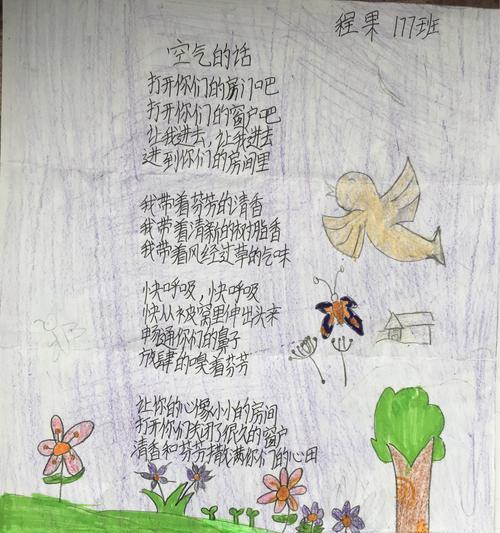 程果 177班
空气的话
打开你们的房门吧
打开你们的窗户吧
让我进去,让我进去
进到你们的房间里
我带着芬芳的清香
我带着清新的树脂香
我带着风经过草的气味
快呼吸,快呼吸
快从被窝里伸出头来
畅通你们的鼻子
放肆的嗅着芬芳
让你的心像小小的房间
打开你们关闭了很久的窗户
清香和芬芳撒满你们的心田